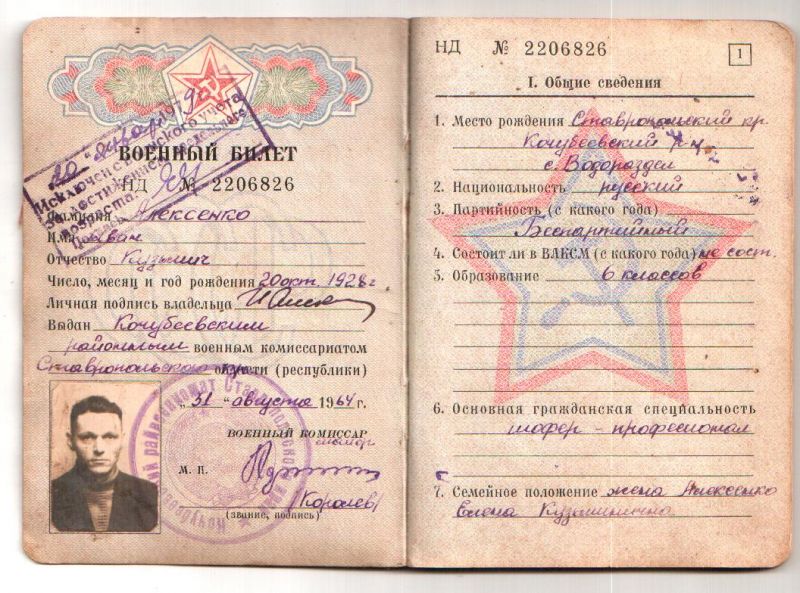 20 марта
Исключен с воинского учета
за достижением предельного
возраста.
ВОЕННЫЙ БИЛЕТ
НД № 2206826
Фамилия Алексенко
Имя Иван
Отчество Кузьмич
Число, месяц и год рождения 20 окт. 1928 г
Личная подпись владельца
Выдан Кочубеевским
районным военным комиссариатом
Ставропольского области (республики)
„31 " августа 1964 г.
ВОЕННЫЙ КОМИССАР
майор
М. П.
(Королев)
(звание, подпись)
НД № 2206826
1
I. Общие сведения
1. Место рождения Ставропольский кр.
Кочубеевский р-н
с. Водораздел
2. Национальность русский
3. Партийность (с какого года)
Беспартийный
4. Состоит ли в ВЛКСМ (с какого года) не сост.
5. Образование 6 классов
6. Основная гражданская специальность
шофер - профессионал
7. Семейное положение жена Алексенко
Елена Кузьминична